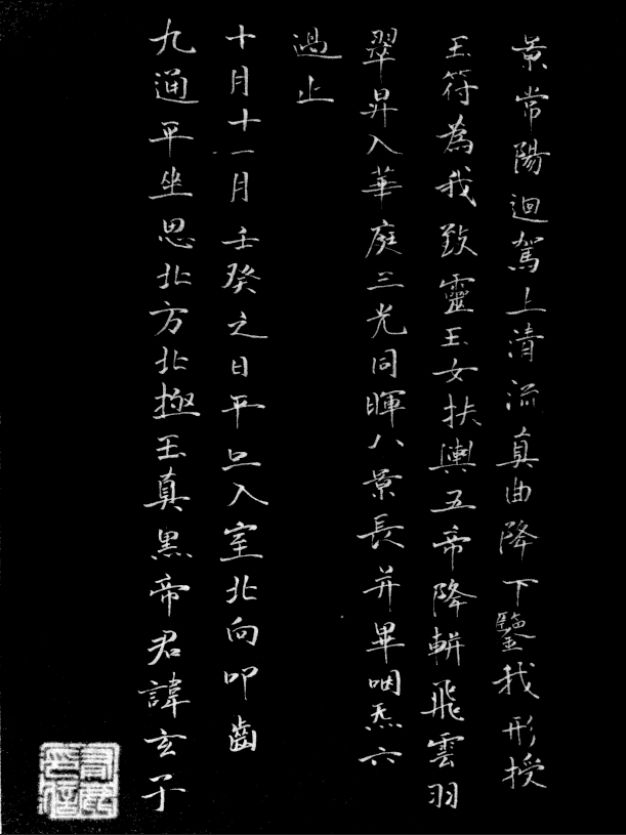 景常陽迴駕上清流真曲降下鑒我形授
玉符為我致靈玉女扶輿五帝降軿飛雲羽
翠昇入華庭三光同暉八景長并畢咽炁六
過止
十月十一月壬癸之日平旦入室北向叩齒
九通平坐思北方北極玉真黑帝君諱玄子